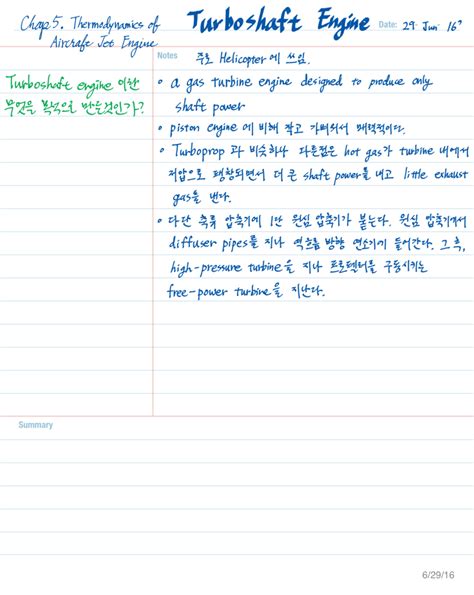 Chap 5. Thermodynamics of
Aircrafe Jet Engine
Turboshaft Engine
Date: 29 Jun 16'
Notes
주로 Helicopter에 쓰임.
Turboshaft engine 이란
무엇을 목적으로 만든것인가?
• a gas turbine engine designed to produce only
shaft power
• piston engine에 비해 작고 가벼워서 매력적이다.
• Turboprop과 비슷하나 다른점은 hot gas가 turbine 내에서
저압으로 팽창되면서 더 큰 shaft power를 내고 little exhaust
gas를 낸다.
• 다단 축류 압축기에 1단 원심 압축기가 붙는다. 원심 압축기에서
diffuser pipes를 지나 역흐름 방향 연소기에 들어간다. 그 후,
high-pressure turbine을 지나 프로펠터를 구동시키는
free-power turbine을 지난다.
Summary
6/29/16